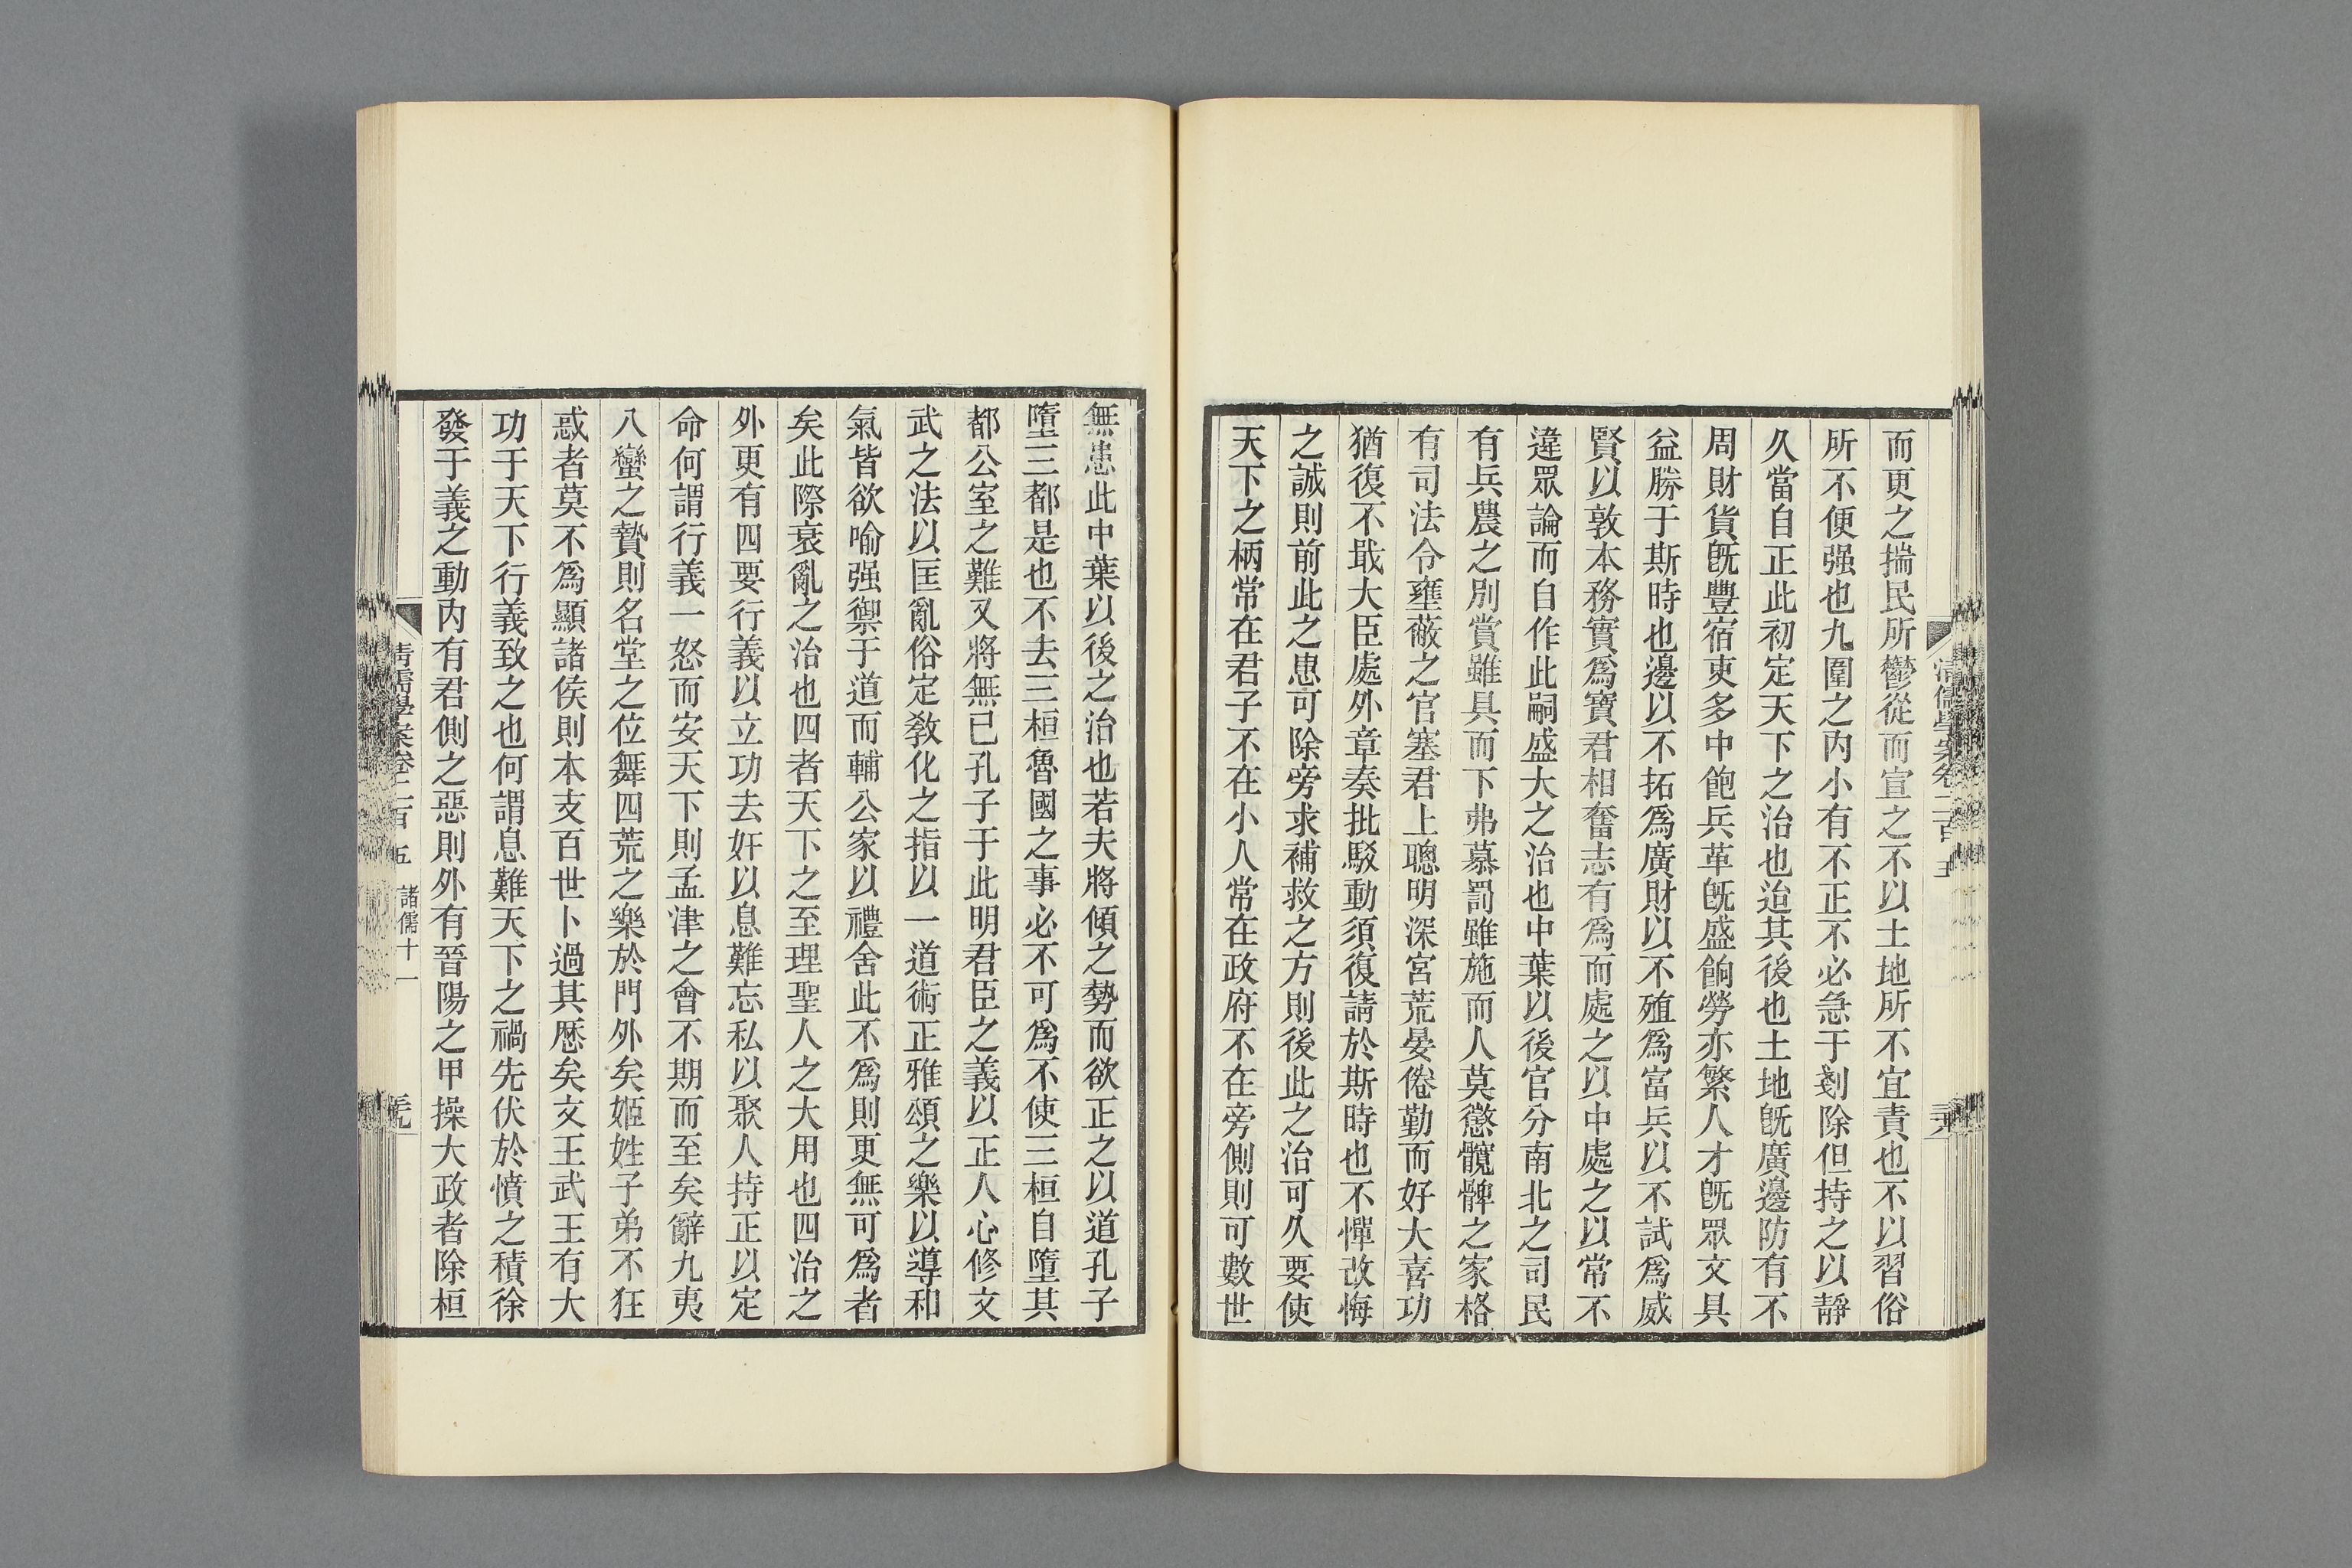 而更之揣民所鬱從而宣之不以土地所不宜責也不以習俗
所不便强也九圍之内小有不正不必急于剗除但持之以靜
久當自正此初定天下之治也迨其後也土地旣廣邊防有不
周財貨旣豐宿吏多中飽兵革旣盛餉勞亦繁人才旣眾文具
益勝于斯時也邊以不拓爲廣財以不殖爲富兵以不試爲威
賢以敦本務實爲寶君相奮志有爲而處之以中處之以常不
違眾論而自作此嗣盛大之治也中葉以後官分南北之司民
有兵農之別賞雖具而下弗慕罰雖施而人莫懲髖髀之家格
有司法令壅蔽之官塞君上聰明深宮荒晏倦勤而好大喜功
猶復不戢大臣處外章奏批駁動須復請於斯時也不憚改悔
之誠則前此之患可除旁求補救之方則後此之治可久要使
天下之柄常在君子不在小人常在政府不在旁側則可數世
清儒學案卷二百五
無患此中葉以後之治也若夫將傾之勢而欲正之以道孔子
墮三都是也不去三桓魯國之事必不可爲不使三桓自墮其
都公室之難又將無已孔子于此明君臣之義以正人心修文
武之法以匡亂俗定敎化之指以一道術正雅頌之樂以導和
氣皆欲喻强禦于道而輔公家以禮舍此不爲則更無可爲者
矣此際衰亂之治也四者天下之至理聖人之大用也四治之
外更有四要行義以立功去奸以息難忘私以聚人持正以定
命何謂行義一怒而安天下則孟津之會不期而至矣辭九夷
八蠻之贄則名堂之位舞四荒之樂於門外矣姬姓子弟不狂
惑者莫不爲顯諸侯則本支百世卜過其歷矣文王武王有大
功于天下行義致之也何謂息難天下之禍先伏於憤之積徐
發于義之動内有君側之惡則外有晉陽之甲操大政者除桓
清儒學案卷二百五 諸儒十一